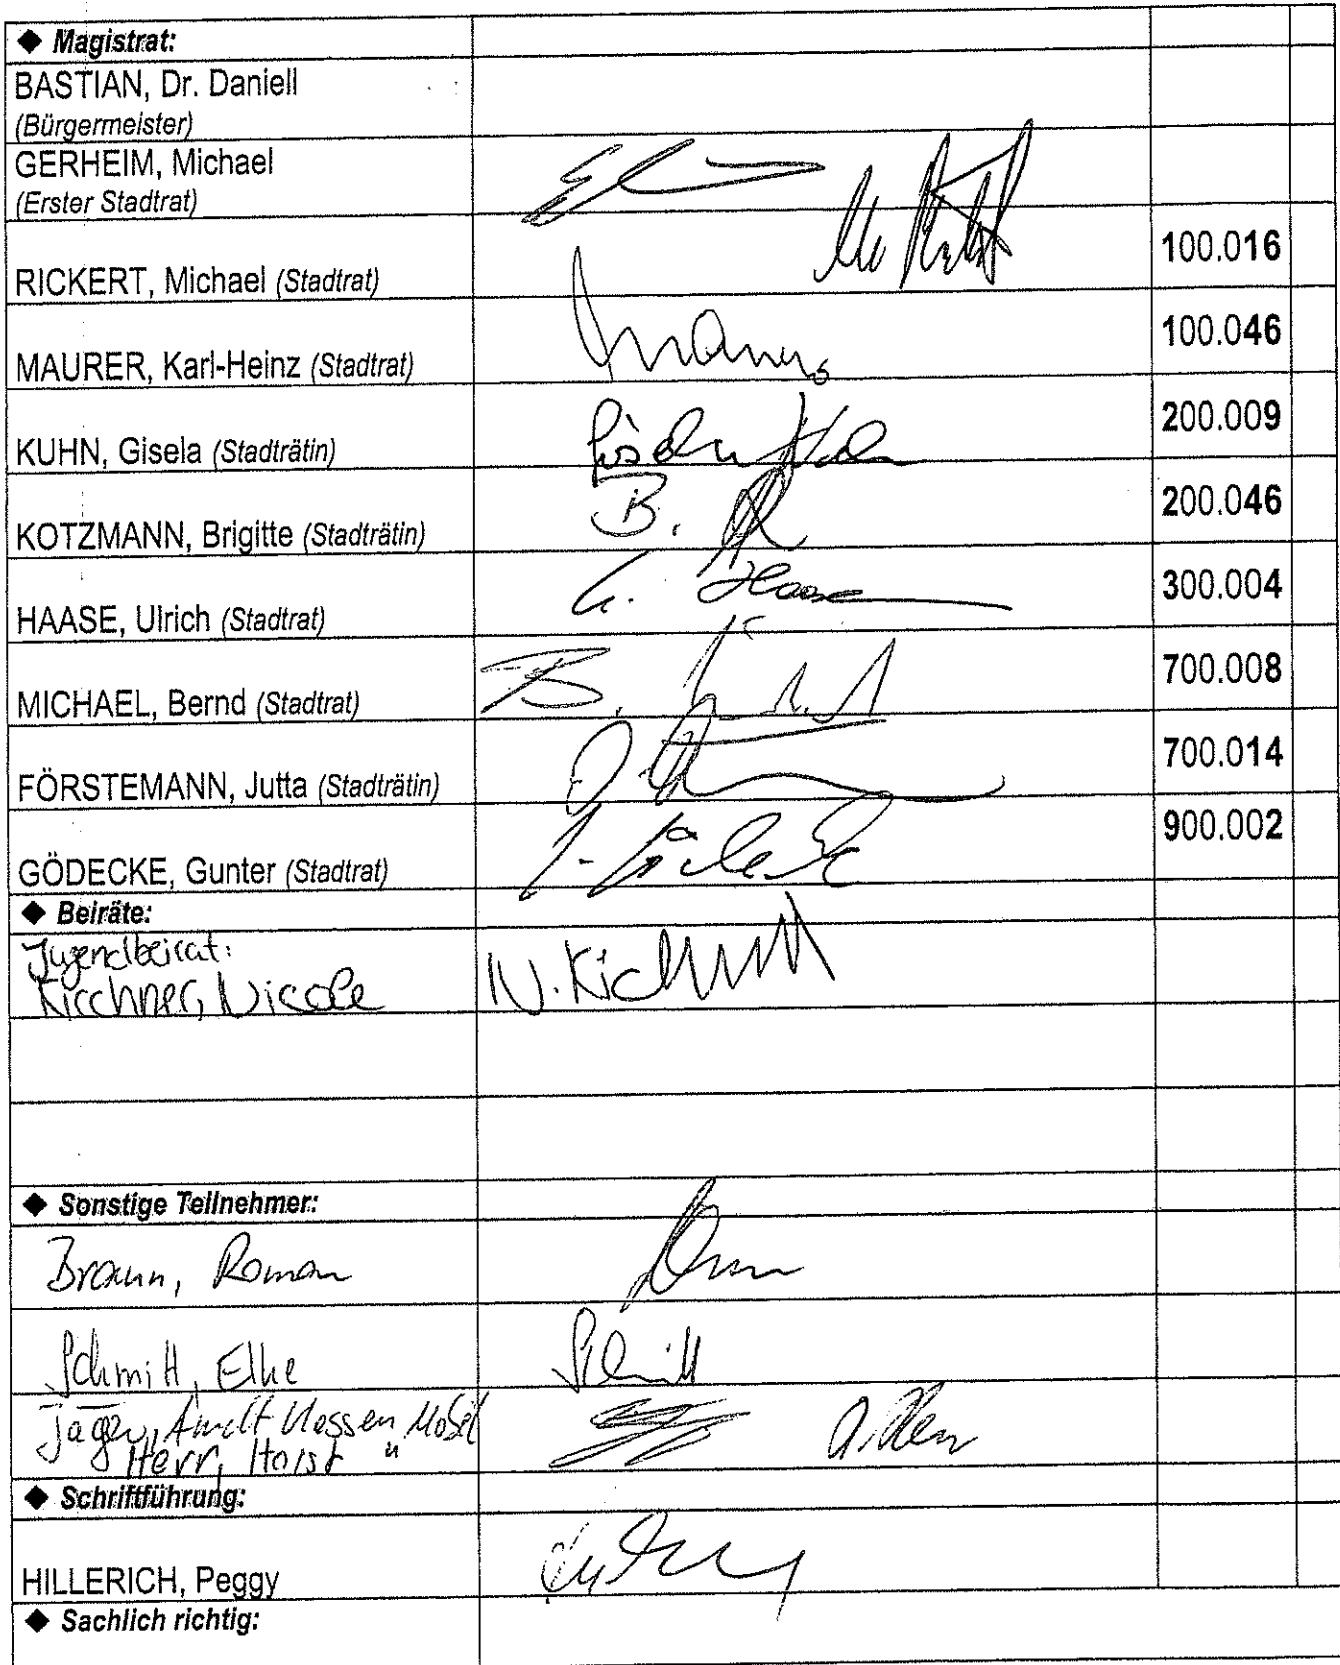 ◆ Magistrat:
BASTIAN, Dr. Daniell
(Bürgermeister)
GERHEIM, Michael
(Erster Stadtrat)
RICKERT, Michael (Stadtrat) 100.016
MAURER, Karl-Heinz (Stadtrat) 100.046
KUHN, Gisela (Stadträtin) 200.009
KOTZMANN, Brigitte (Stadträtin) B. 200.046
HAASE, Ulrich (Stadtrat) Haase 300.004
MICHAEL, Bernd (Stadtrat) B. 700.008
FÖRSTEMANN, Jutta (Stadträtin) 700.014
GÖDECKE, Gunter (Stadtrat) 900.002
◆ Beiräte:
Jugendbeirat:
Kirchner, Nicole N. Kirchner
◆ Sonstige Teilnehmer:
Braun, Roman
Schmitt, Elke Schmitt
Jäger, Hessen Mobil
Herr, Horst "
◆ Schriftführung:
HILLERICH, Peggy
◆ Sachlich richtig: